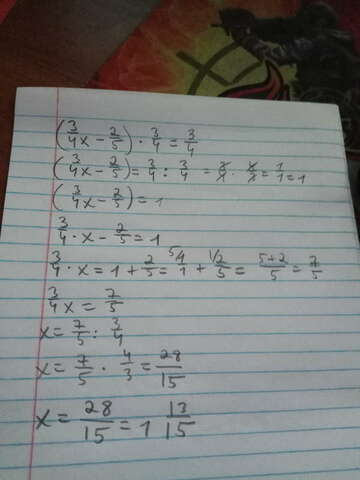 (3/4x - 2/5) · 3/4 = 3/4
(3/4x - 2/5) = 3/4 : 3/4 = x/x · x/x = 1/1 = 1
(3/4x - 2/5) = 1
3/4 · x - 2/5 = 1
3/4 · x = 1 + 2/5 = 5/ 1/1 + 1/ 2/5 = 5+2/5 = 7/5
3/4 x = 7/5
x = 7/5 : 3/4
x = 7/5 · 4/3 = 28/15
x = 28/15 = 1 13/15